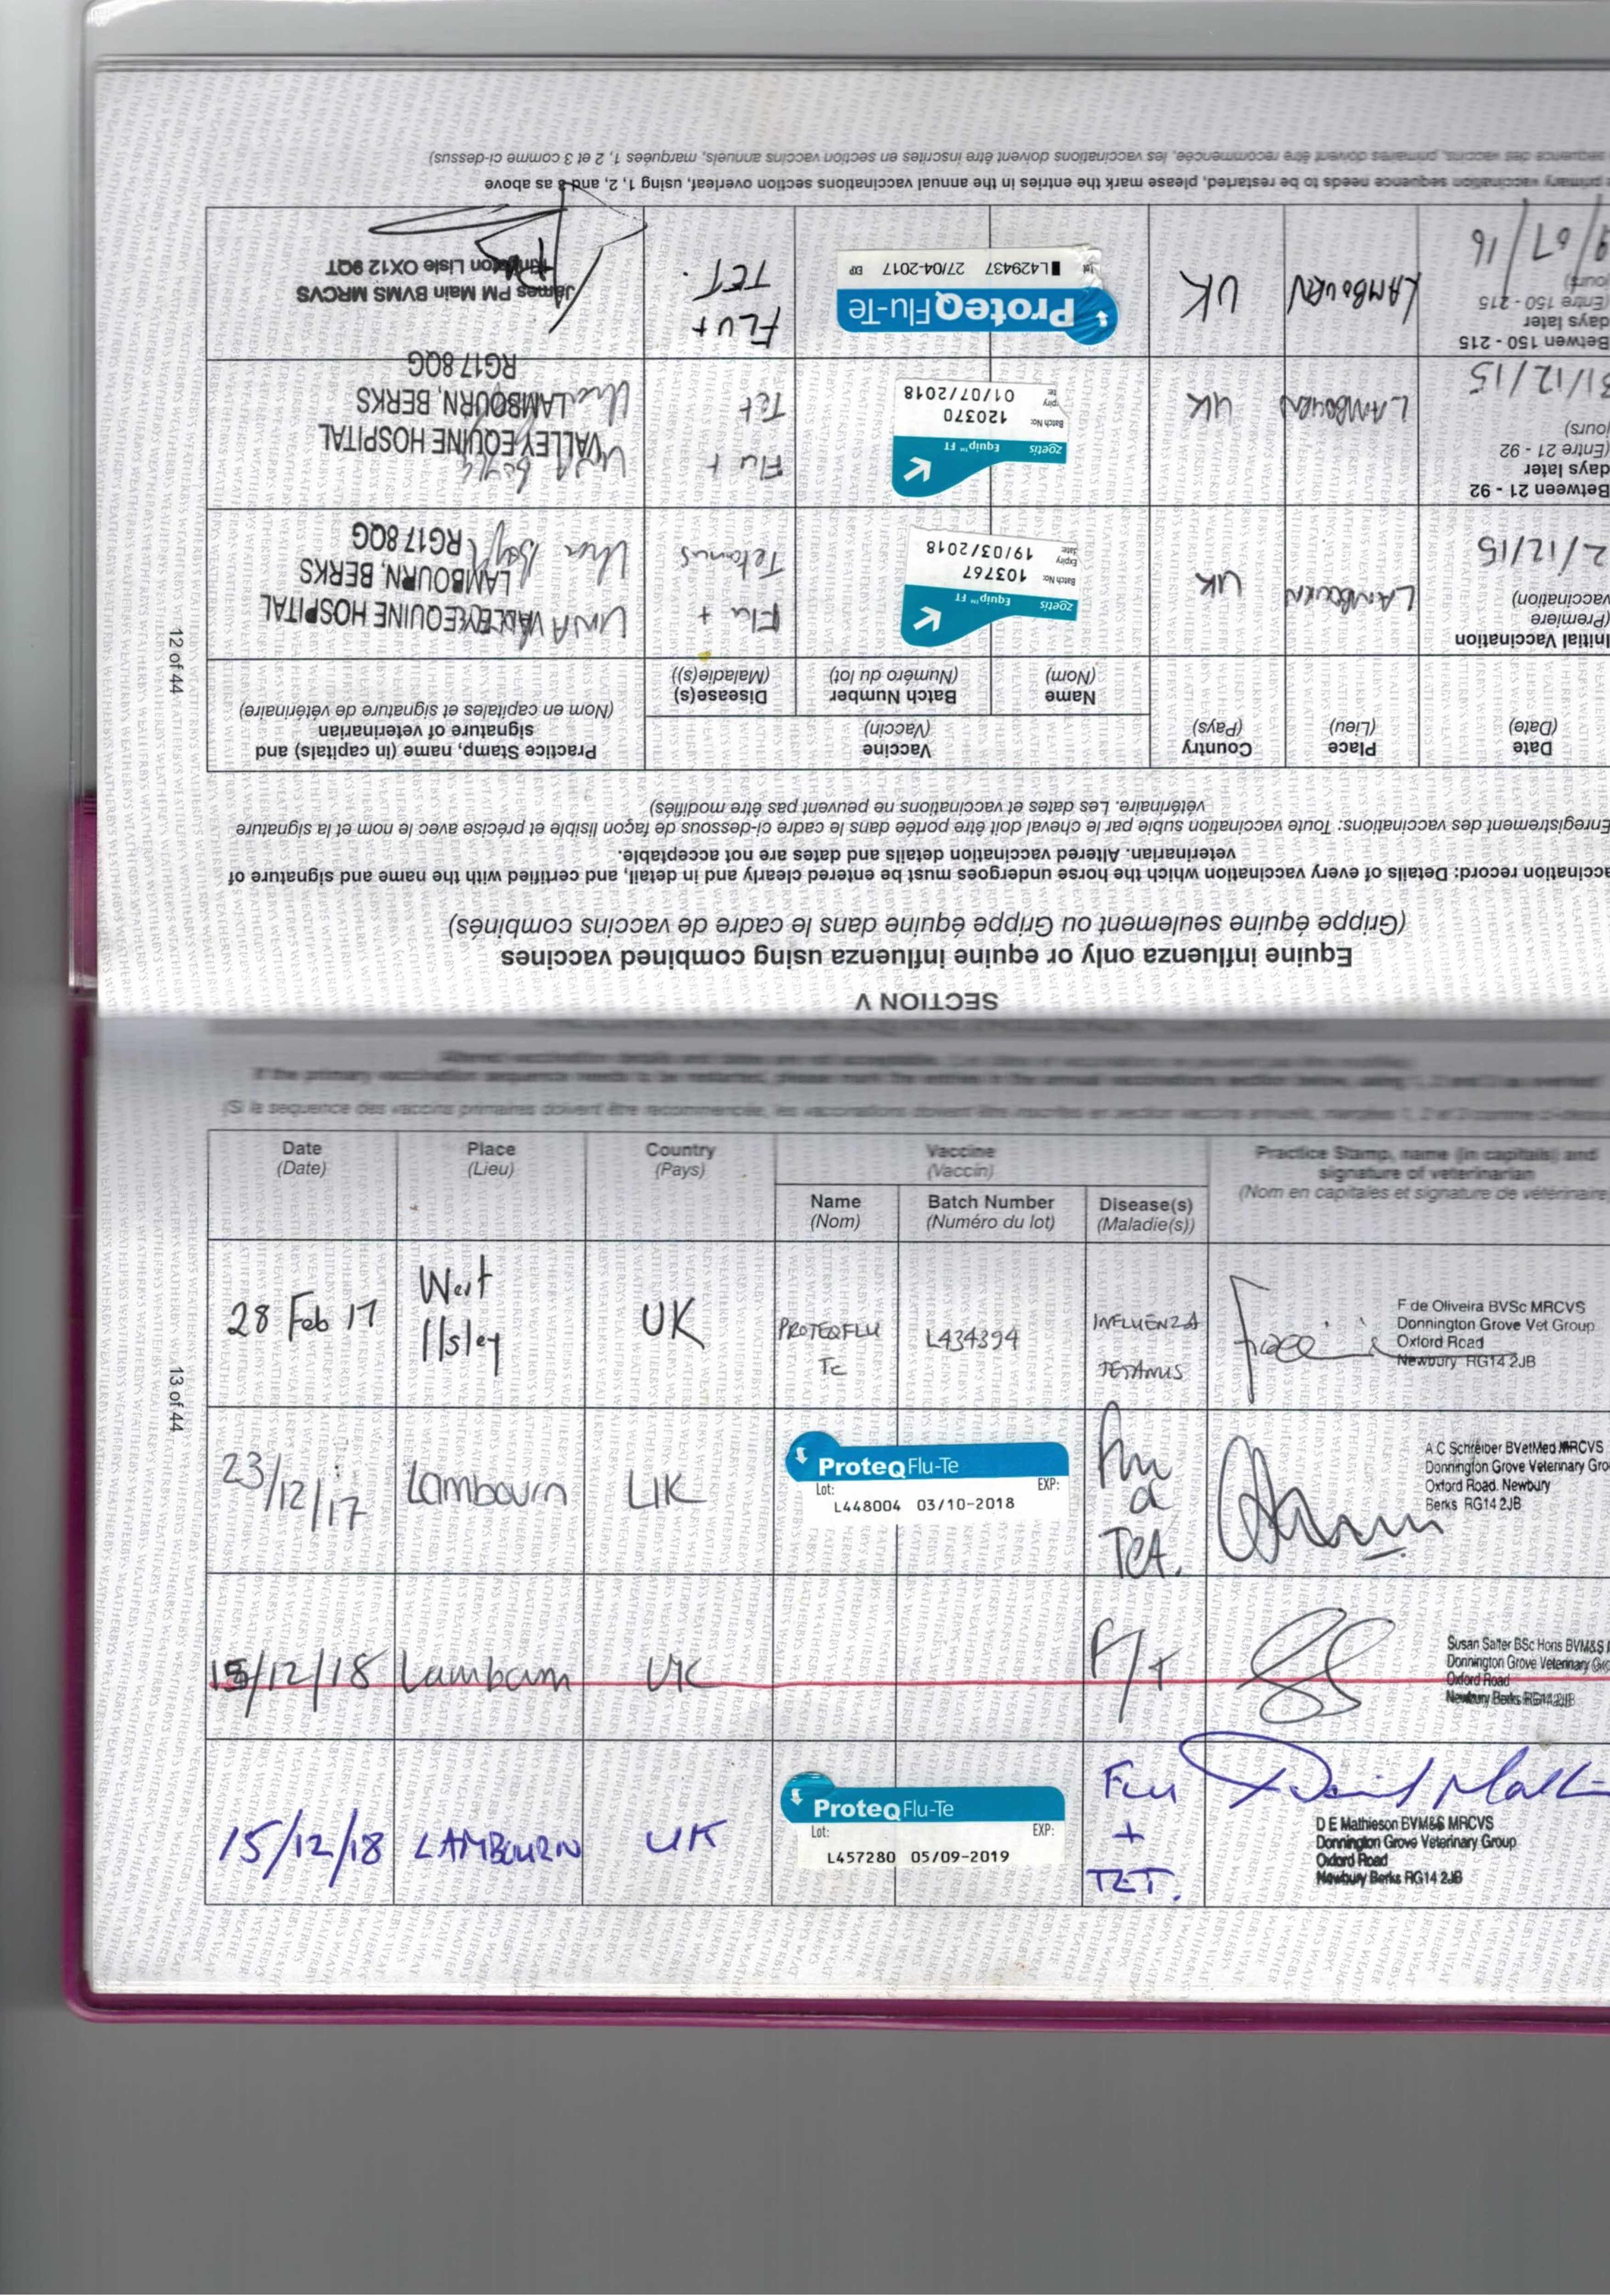 SECTION V
Equine influenza only or equine influenza using combined vaccines
(Grippe équine seulement ou Grippe équine dans le cadre de vaccins combinés)
accination record: Details of every vaccination which the horse undergoes must be entered clearly and in detail, and certified with the name and signature of
veterinarian. Altered vaccination details and dates are not acceptable.
Enregistrement des vaccinations: Toute vaccination subie par le cheval doit être portée dans le cadre ci-dessous de façon lisible et précise avec le nom et la signature
vétérinaire. Les dates et vaccinations ne peuvent pas être modifiés)
Date
(Date)
Place
(Lieu)
Country
(Pays)
Vaccine
(Vaccin)
Name
(Nom)
Batch Number
(Numéro du lot)
Disease(s)
(Maladie(s))
Practice Stamp, name (in capitals) and
signature of veterinarian
(Nom en capitales et signature de vétérinaire)
Initial Vaccination
(Premiere
vaccination)
2/12/15
LAMBOURN
UK
zoetis Equip™ FT
Batch No: 103767
Expiry date: 19/03/2018
Flu +
Tetanus
UNA
VALLEY EQUINE HOSPITAL
LAMBOURN, BERKS
RG17 8QG
Between 21 - 92
days later
(Entre 21 - 92
jours)
31/12/15
LAMBOURN
UK
zoetis Equip™ FT
Batch No: 120370
Expiry te: 01/07/2018
Flu +
Tet
VALLEY EQUINE HOSPITAL
LAMBOURN, BERKS
RG17 8QG
Betwen 150 - 215
days later
(Entre 150 - 215
jours)
9/07/16
LAMBOURN
UK
ProteqFlu-Te
Lot L429437 27/04-2017 EXP
FLU +
TET.
James PM Main BVMS MRCVS
Kingston Lisle OX12 9QT
primary vaccination sequence needs to be restarted, please mark the entries in the annual vaccinations section overleaf, using 1, 2, and 3 as above
sequence des vaccins, primaires doivent être recommencée, les vaccinations doivent être inscrites en section vaccins annuels, marquées 1, 2 et 3 comme ci-dessus)
12 of 44
If the primary vaccination sequence needs to be restarted, please mark the entries in the annual vaccinations section below, using 1, 2 and 3 as overleaf
(Si la sequence des vaccins primaires doivent être recommencée, les vaccinations doivent être inscrites en section vaccins annuels, marquées 1, 2 et 3 comme ci-dessus
Date
(Date)
Place
(Lieu)
Country
(Pays)
Vaccine
(Vaccin)
Name
(Nom)
Batch Number
(Numéro du lot)
Disease(s)
(Maladie(s))
Practice Stamp, name (in capitals) and
signature of veterinarian
(Nom en capitales et signature de vétérinaire)
28 Feb 17
West
Ilsley
UK
PROTEQFLU
Te
L434394
INFLUENZA
TETANUS
F de Oliveira BVSc MRCVS
Donnington Grove Vet Group
Oxford Road
Newbury RG14 2JB
23/12/17
Lambourn
UK
ProteqFlu-Te
Lot: EXP:
L448004 03/10-2018
Flu
&
TET.
A C Schreiber BVetMed MRCVS
Donnington Grove Veterinary Gro
Oxford Road. Newbury
Berks RG14 2JB
15/12/18
Lambourn
UK
F/T
Susan Salter BSc Hons BVM&S
Donnington Grove Veterinary Gro
Oxford Road
Newbury Berks RG14 2JB
15/12/18
LAMBOURN
UK
ProteqFlu-Te
Lot: EXP:
L457280 05/09-2019
FLU
+
TET.
D E Mathieson BVM&S MRCVS
Donnington Grove Veterinary Group
Oxford Road
Newbury Berks RG14 2JB
13 of 44